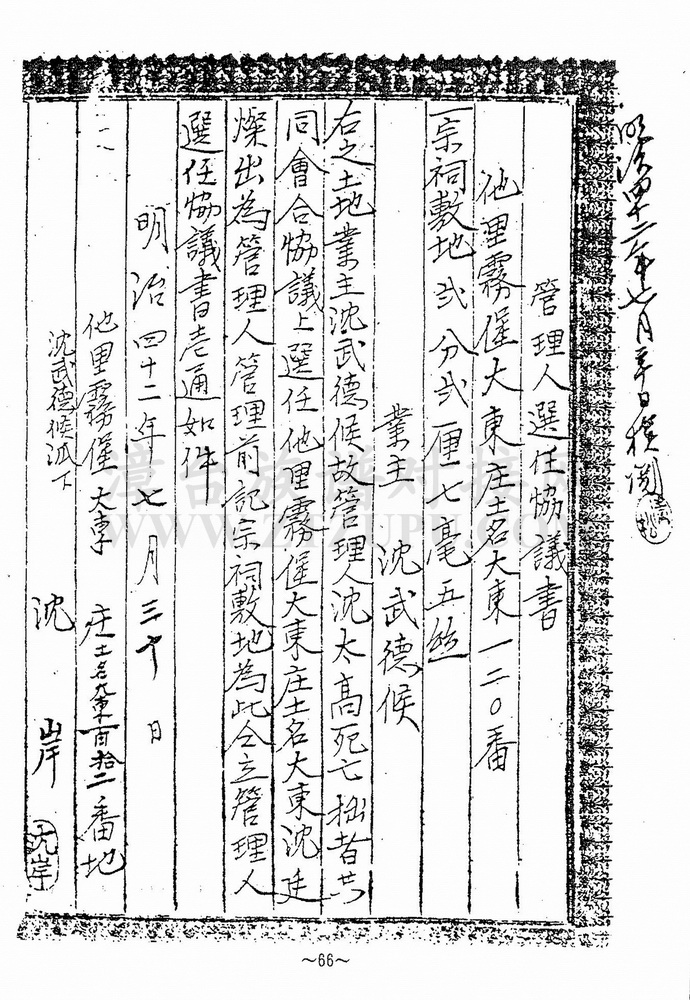 明治四十二年七月三十日 檢閱
管理人選任協議書
他里霧堡大東庄土名大東一二〇番
一宗祠敷地弐分弐厘七毫五絲
業主 沈武德候
右之土地業主沈武德候故管理人沈太高死亡拙者共
同會合協議上選任他里霧堡大東庄土名大東沈廷
燦出為管理人管理前記宗祠敷地為此仝立管理人
選任協議書壱通如件
明治四十二年七月三十日
他里霧堡大東 庄土名大東百拾二番地
沈武德候派下 沈 岸
漳台族谱对接
WWW.ZTZUPU.COM
~66~